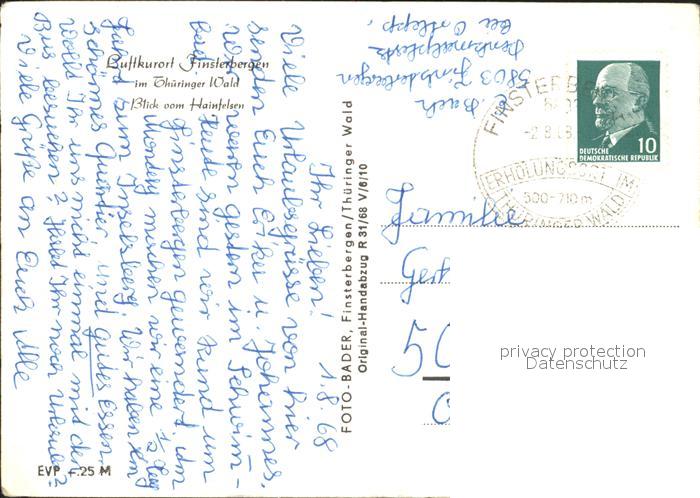 Luftkurort Finsterbergen
im Thüringer Wald
Blick vom Hainfelsen
1.8.68
Ihr Lieben!
Viele Urlaubsgrüsse von hier
senden Euch Erika u. Johannes.
Wir waren gestern im Schwimm-
bad. Heute sind wir rund um
Finsterbergen gewandert. Am
Montag machen wir eine 1/2 Tag
Fahrt zum Inselsberg. Wir haben ein
schönes Quartier und gutes Essen.
Wollt Ihr uns nicht einmal mit dem
Bus besuchen? Habt Ihr noch Urlaub?
Viele Grüße an Euch alle
EVP -.25 M
FOTO-BADER, Finsterbergen/Thüringer Wald
Original-Handabzug R 31/68 V/6/10
5803 Finsterbergen
bei
FINSTERBERGEN
-2.8.68
ERHOLUNGSORT IM
500-710m
THÜRINGER WALD
DEUTSCHE
DEMOKRATISCHE REPUBLIK
10
Familie
Ger
50
privacy protection
Datenschutz